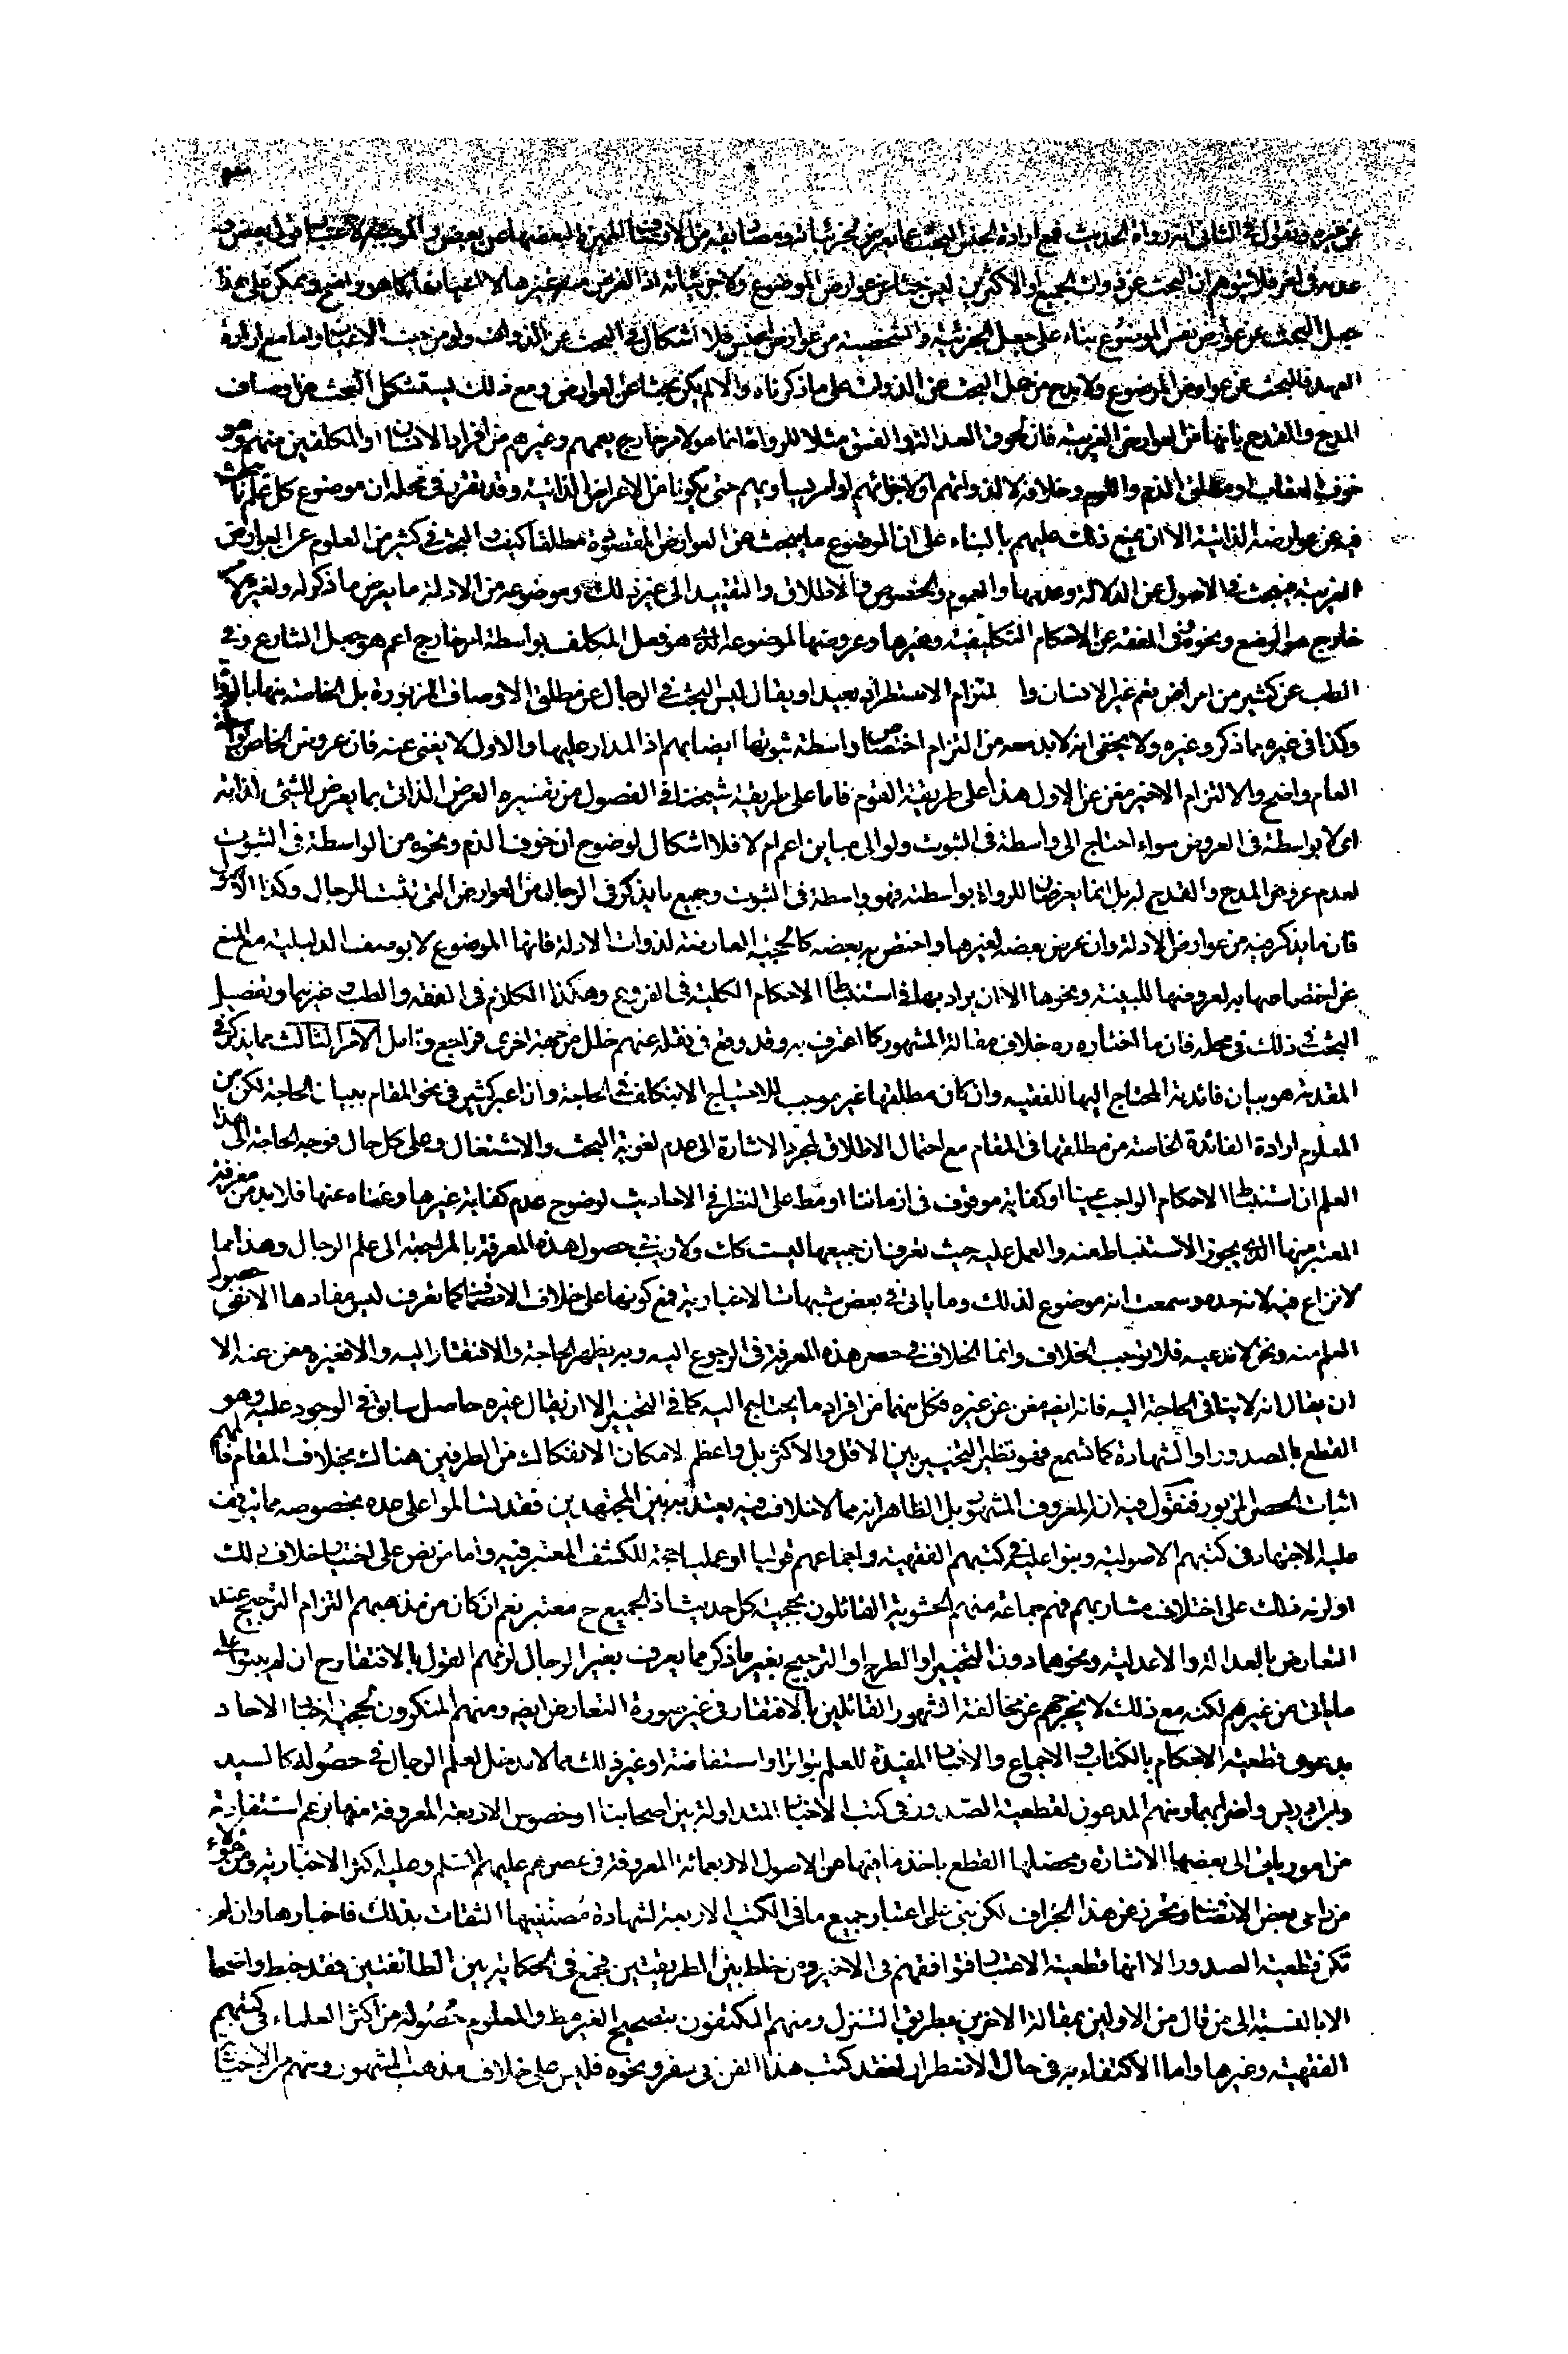 عن غيره ونقول في الثاني انه رواة الحديث فمع ارادة الجنس البحث عما يعرض لجزئياته ومصاديقه من الاوصاف المميزة لبعضها عن بعض والموجبة لاعتبار قول بعض و
عدمه في اخر فلا يتوهم ان البحث عن ذوات الجميع او الاكثرين ليس بحثا عن عوارض الموضوع ولا جزئياته اذ الغرض منه غيرها لا اعيانها كما هو واضح ويمكن على هذا
جعل البحث عن عوارض نفس الموضوع بناء على جعل الجزئية والشخصية من عوارض الجنس فلا اشكال في البحث عن الذوات ولو من حيث الاعيان واما مع ارادة
العهد فالبحث عن عوارض الموضوع ولا بد ح من حمل البحث عن الذوات على ما ذكرناه والا لم يكن بحثا عن العوارض ومع ذلك يستشكل البحث عن اوصاف
المدح والقدح بانها من العوارض الغريبة فان لحوق العدالة والفسق مثلا للرواة انما هو لامر خارج يعمهم وغيرهم من افراد الانسان او المكلفين منهم وهو
خوف العقاب او مطلق الذم واللوم وخلافه لا لذواتهم او لاجزائهم او لامر يساويهم حتى يكونا من الاعراض الذاتية وقد تقرر في محله ان موضوع كل علم ما يبحث
فيه عن عوارضه الذاتية الا ان يمنع ذلك عليهم بالبناء على ان الموضوع ما يبحث عن العوارض المقصودة مطلقا كيف والبحث في كثير من العلوم عن العوارض
الغريبة فيبحث في الاصول عن الدلالة وعدمها والعموم والخصوص والاطلاق والتقييد الى غير ذلك وموضوعه من الادلة ما يعرض ما ذكر له ولغيره لامر
خارج هو الوضع ونحوه وفي الفقه عن الاحكام التكليفية وغيرها وعروضها لموضوعه الذي هو فعل المكلف بواسطة امر خارج اعم هو جعل الشارع وفي
الطب عن كثير من امراض تعم غير الانسان و التزام الاستطراد بعيد او يقال ليس البحث في الرجال عن مطلق الاوصاف المزبورة بل الخاصة منها بالرواة
وكذا في غيره مما ذكر وغيره ولا يخفى انه لا بد معه من التزام اختصاص واسطة ثبوتها ايضا بهم اذ المدار عليها والاول لا يغني عنه فان عروض الخاص بواسطة
العام واضح والالتزام الاخير مغن عن الاول هذا على طريقة القوم فاما على طريقة شيخنا في الفصول من تفسيره العرض الذاتي بما يعرض للشيء لذاته
اي لا بواسطة في العروض سواء احتاج الى واسطة في الثبوت ولو الى مباين اعم ام لا فلا اشكال لوضوح ان خوف الذم ونحوه من الواسطة في الثبوت
لعدم عروض المدح والقدح له بل انما يعرضان للرواة بواسطته فهو واسطة في الثبوت وجميع ما يذكر في الرجال من العوارض التي تثبت للرجال وكذا الاصول
فان ما يذكر فيه من عوارض الادلة وان عرض بعضه لغيرها واختص به بعضه كالحجية العارضة لذوات الادلة فانها الموضوع لا بوصف الدليلية مع المنع
عن اختصاصها به لعروضها للبينة ونحوها الا ان يراد بها في استنباط الاحكام الكلية في الفروع وهكذا الكلام في الفقه والطب وغيرهما وتفصيل
البحث في ذلك في محله فان ما اختاره ره خلاف مقالة المشهور كما اعترف به وقد وقع في نقله عنهم خلل من جهة اخرى فراجع وتامل الامر الثالث مما يذكر في
المقدمة هو بيان فائدته المحتاج اليها للفقيه وان كان مطلقها غير موجب للاحتياج الا بتكلف في الحاجة وان اعبر كثير في نحو المقام ببيان الحاجة لكن من
المعلوم ارادة الفائدة الخاصة من مطلقها في المقام مع احتمال الاطلاق لمجرد الاشارة الى عدم لغوية البحث والاشتغال وعلى كل حال فوجه الحاجة الى هذا
العلم ان استنباط الاحكام الواجب عينا او كفاية موقوف في ازماننا او مط على النظر في الاحاديث لوضوح عدم كفاية غيرها وغناه عنها فلا بد من معرفة
المعتبر منها الذي يجوز الاستنباط منه والعمل عليه حيث نعرف ان جميعها ليست كك ولا ريب في حصول هذه المعرفة بالمراجعة الى علم الرجال وهذا مما
لا نزاع فيه لانه حده وسمعت انه موضوع لذلك وما ياتي في بعض شبهات الاخبارية فمع كونها على خلاف الانصاف كما تعرف ليس مفادها الا نفي حصول
العلم منه ونحن لا ندعيه فلا توجب الخلاف وانما الخلاف في حصر هذه المعرفة في الرجوع اليه وبه يظهر الحاجة والافتقار اليه والا فغيره مغن عنه الا
ان يقال انه لا ينافي الحاجة اليه فانه ايضا مغن عن غيره فكل منهما من افراد ما يحتاج اليه كما في التخيير الا ان يقال غيره حاصل سابق في الوجود عليه وهو
القطع بالصدور او الشهادة كما تسمع فهو نظير التخيير بين الاقل والاكثر بل واعظم لامكان الانفكاك من الطرفين هناك بخلاف المقام فالمهم
اثبات الحصر المزبور فنقول فيه ان المعروف المشهور بل الظاهر انه مما لا خلاف فيه يعتد به بين المجتهدين فقد تسالموا على عده بخصوصه مما يتوقف
عليه الاجتهاد في كتبهم الاصولية وبنوا عليه في كتبهم الفقهية واجماعهم قوليا او عمليا حجة للكشف المعتبر فيه واما من نص على اختيار خلاف ذلك
او لزمه ذلك على اختلاف مشاربهم فهم جماعة منهم الحشوية القائلون بحجية كل حديث اذ الجميع ح معتبر نعم ان كان من مذهبهم التزام الترجيح عند
التعارض بالعدالة والاعدلية ونحوهما دون التخيير او الطرح او الترجيح بغير ما ذكر مما يعرف بغير الرجال لزمهم القول بالافتقار ح ان لم يبنوا على
ما ياتي من غيرهم لكنه مع ذلك لا يخرجهم عن مخالفة المشهور القائلين بالافتقار في غير صورة التعارض ايضا ومنهم المنكرون لحجية اخبار الاحاد
بدعوى قطعية الاحكام بالكتاب والاجماع والاخبار المفيدة للعلم تواترا او استفاضة او غير ذلك مما لا مدخل لعلم الرجال في حصوله كالسيد
وابن ادريس واضرابهما ومنهم المدعون لقطعية الصدور في كتب الاخبار المتداولة بين اصحابنا او خصوص الاربعة المعروفة منها بزعم استفادته
من امور ياتي الى بعضها الاشارة ومحصلها القطع باخذ ما فيها من الاصول الاربعمائة المعروفة في عصرهم عليهم السلم وعليه اكثر الاخبارية ومن هؤلاء
من راعى بعض الانصاف وتحرز عن هذا الجزاف لكن بنى على اعتبار جميع ما في الكتب الاربعة لشهادة مصنفيها الثقات بذلك فاخبارها وان لم
تكن قطعية الصدور الا انها قطعية الاعتبار فوافقهم في الاخير ومن خلط بين الطريقتين فجمع في الحكاية بين الطائفتين فقد خبط واضحا
الا بالنسبة الى من قال من الاولين بمقالة الاخرين بطريق التنزل ومنهم المكتفون بتصحيح الغير مط والمعلوم حصوله من اكثر العلماء في كتبهم
الفقهية وغيرها واما الاكتفاء به في حال الاضطرار لفقد كتب هذا الفن في سفر ونحوه فليس على خلاف مذهب المشهور ومنهم